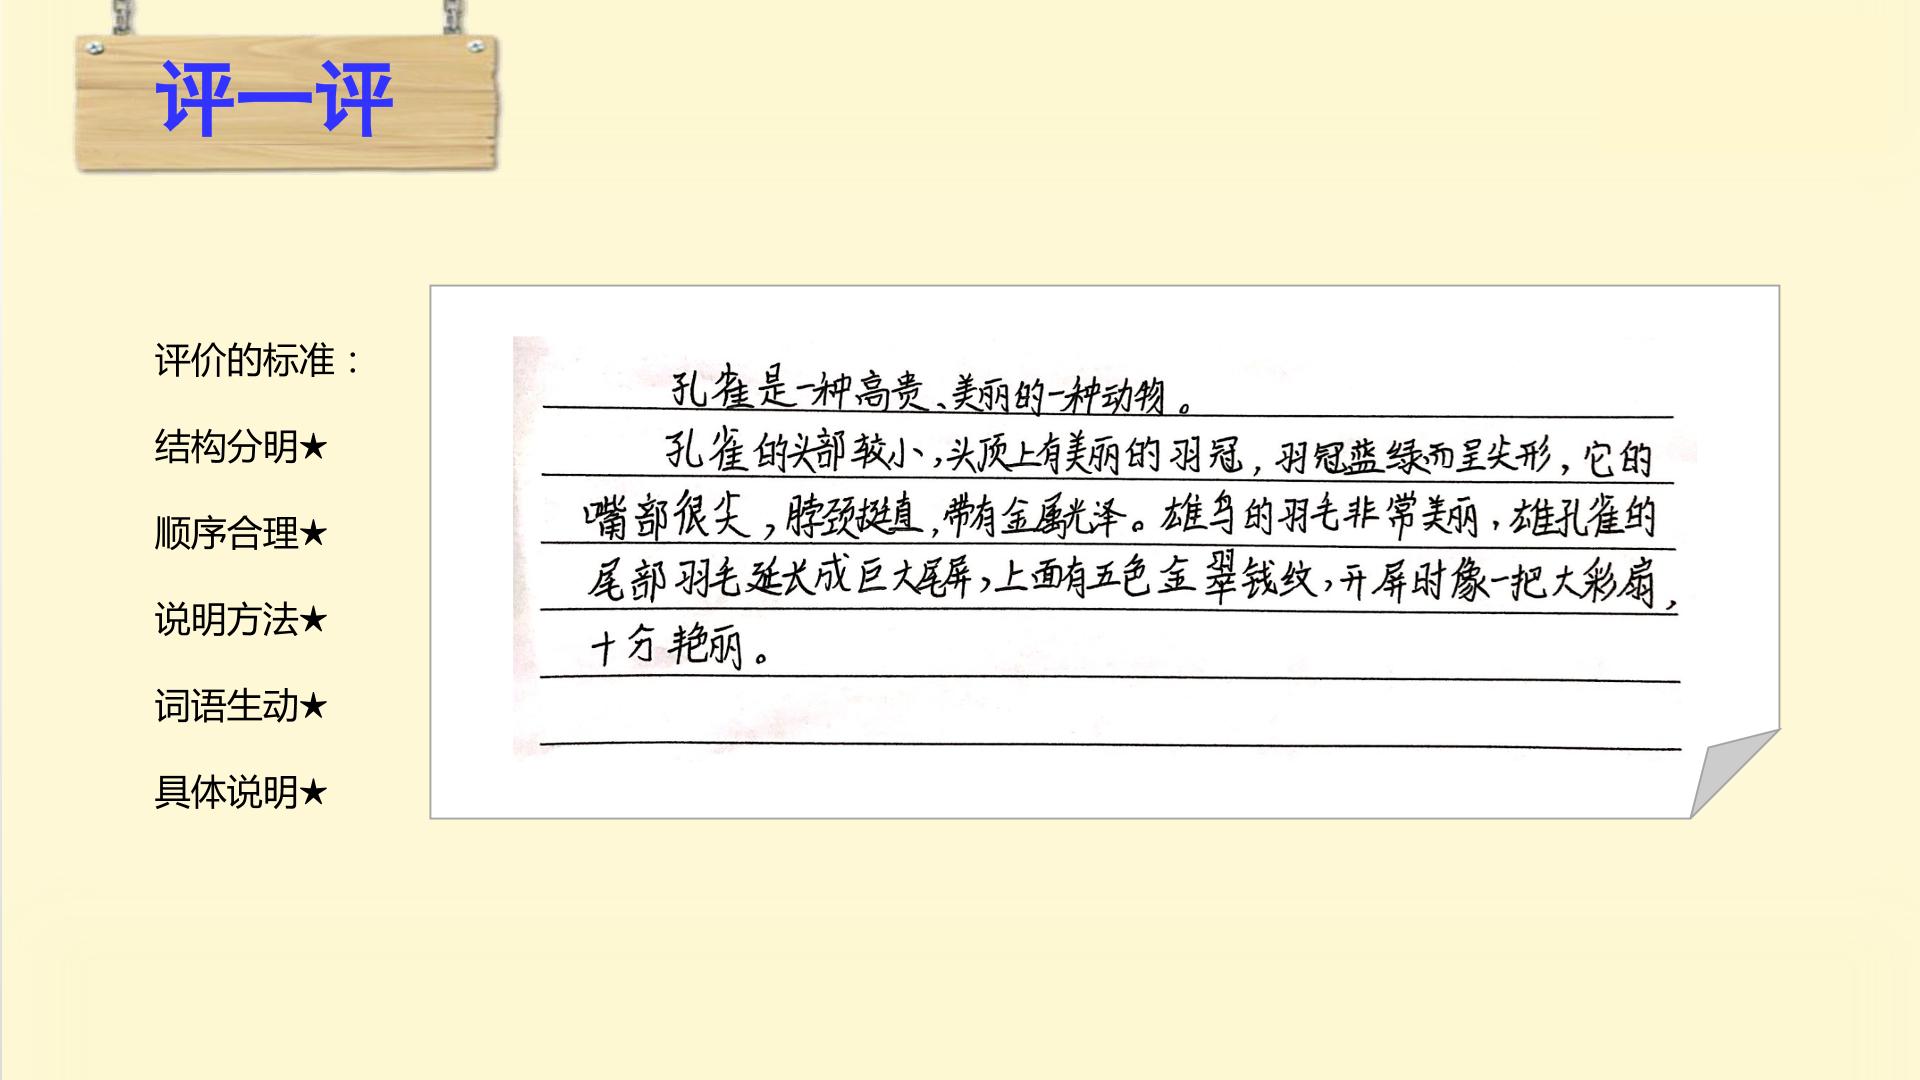 评一评
评价的标准：
结构分明★
顺序合理★
说明方法★
词语生动★
具体说明★
孔雀是一种高贵、美丽的一种动物。
孔雀的头部较小，头顶上有美丽的羽冠，羽冠蓝绿而呈尖形，它的
嘴部很尖，脖颈挺直，带有金属光泽。雄鸟的羽毛非常美丽，雄孔雀的
尾部羽毛延长成巨大尾屏，上面有五色金翠钱纹，开屏时像一把大彩扇，
十分艳丽。